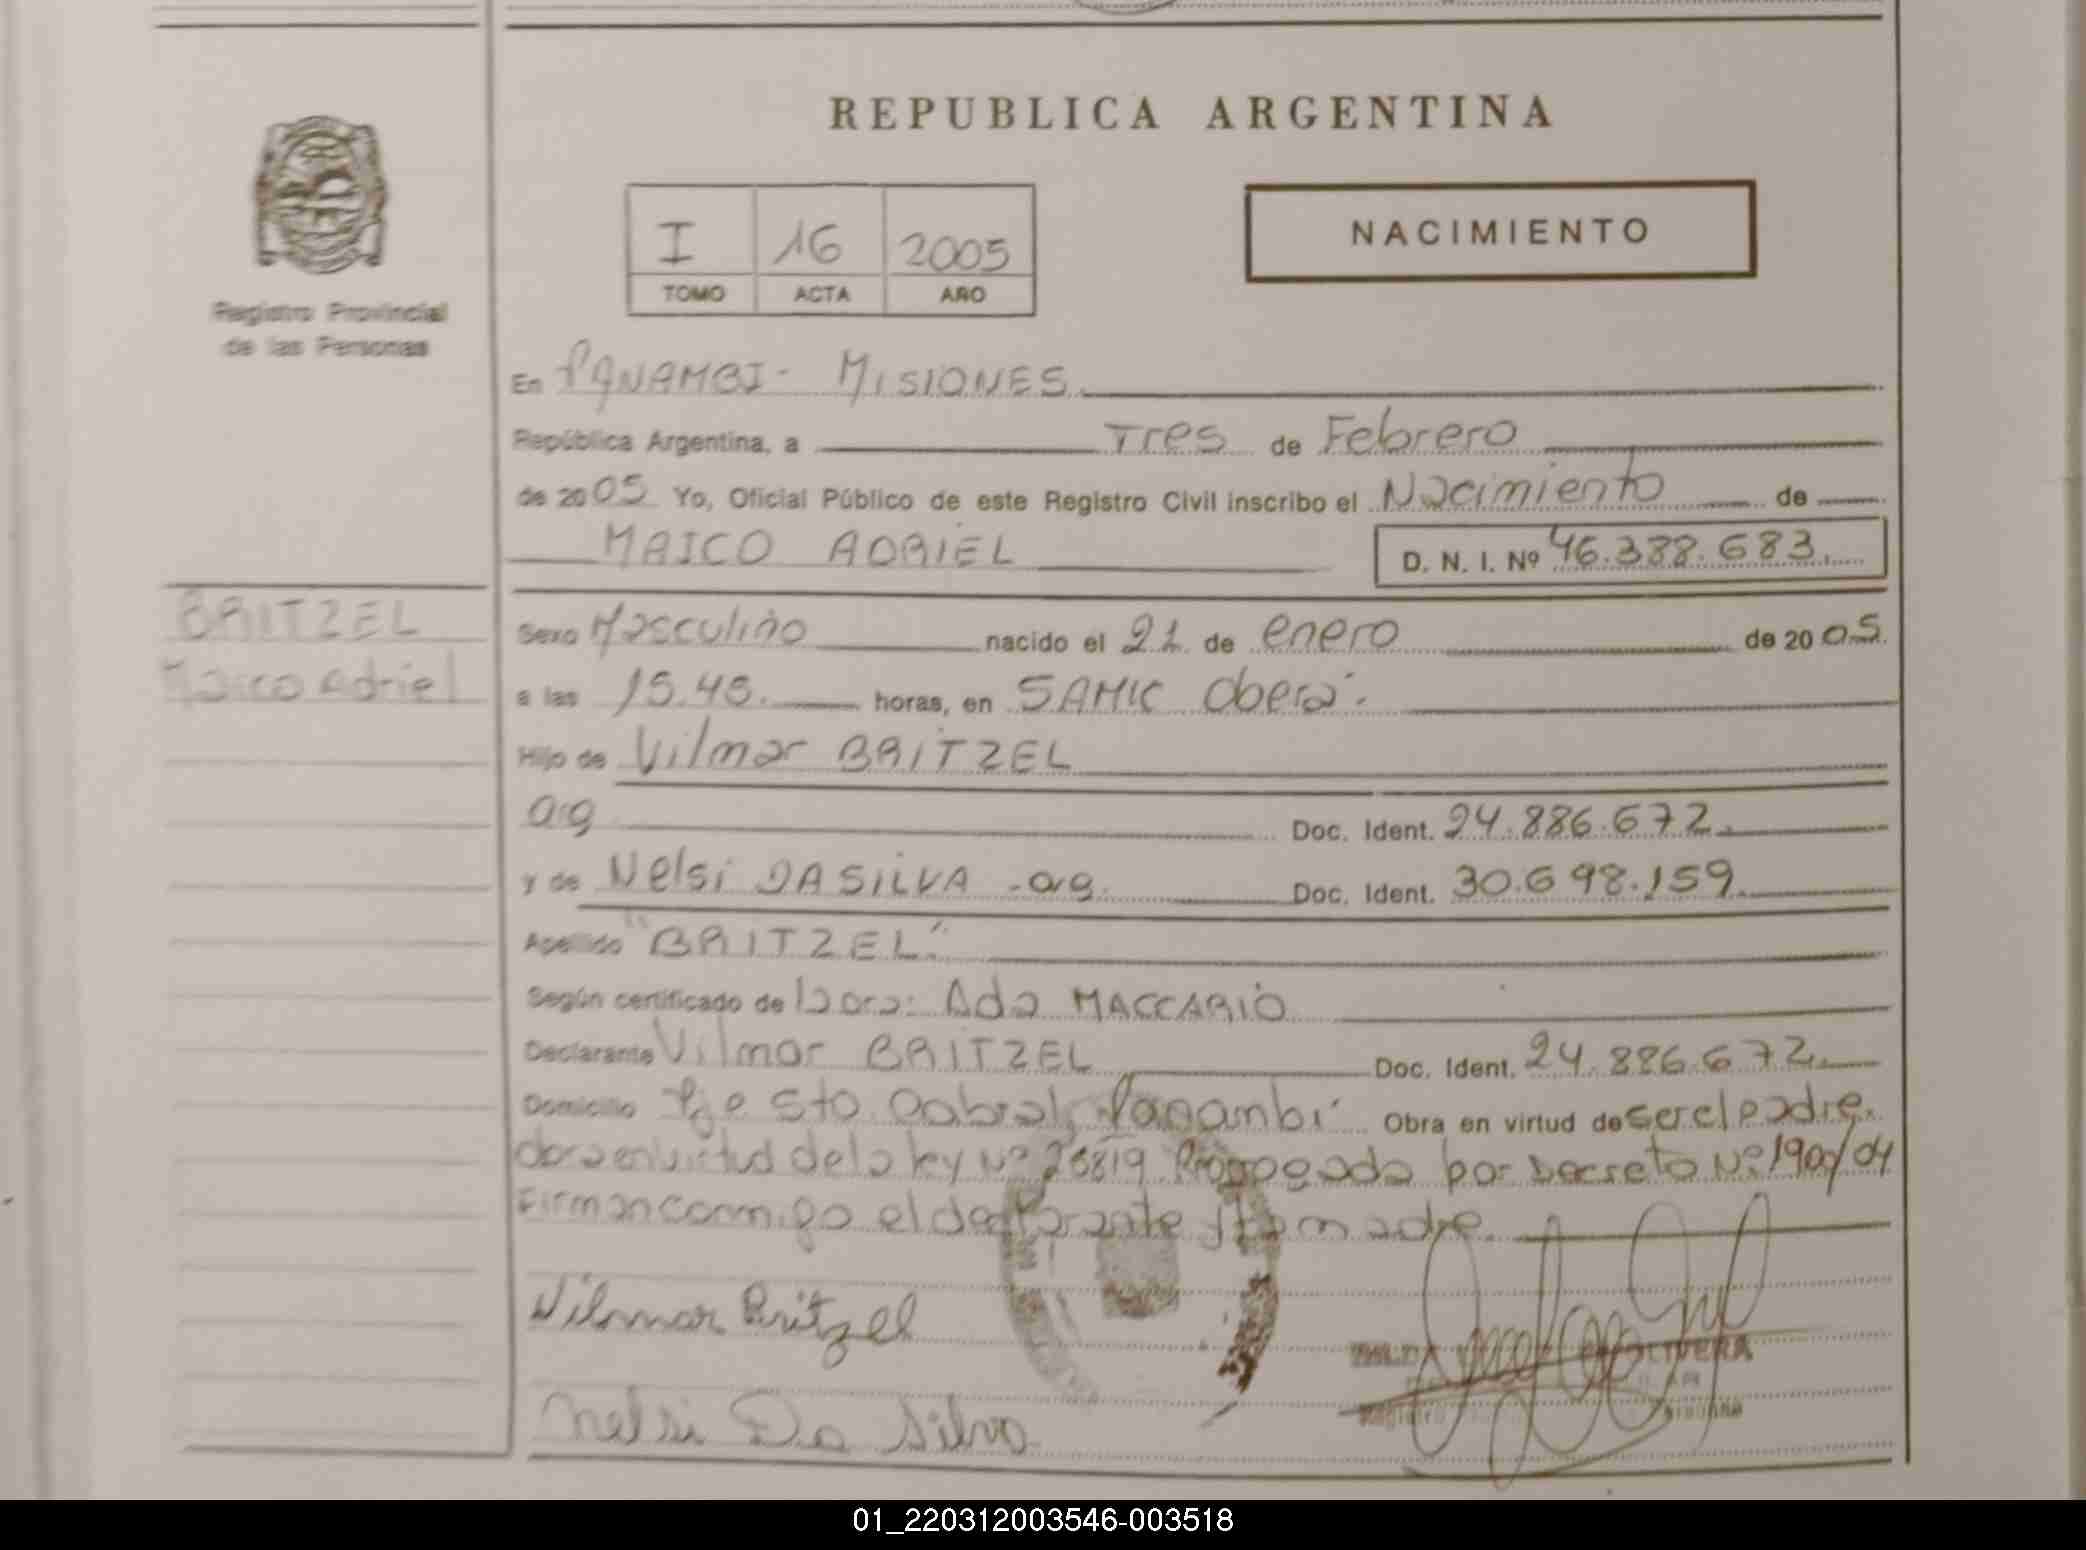 REPUBLICA ARGENTINA
NACIMIENTO
I 16 2005
TOMO ACTA AÑO
Registro Provincial
de las Personas
En PANAMBI - MISIONES
República Argentina, a Tres de Febrero
de 2005 Yo, Oficial Público de este Registro Civil inscribo el Nacimiento de
MAICO ADRIEL D. N. I. Nº 46.388.683.
BRITZEL
Maico Adriel
Sexo Masculino nacido el 21 de enero de 2005.
a las 15.45. horas, en SAMIC Oberá.
Hijo de Vilmar BRITZEL
arg Doc. Ident. 24.886.672.
y de Nelsi DASILVA - arg. Doc. Ident. 30.698.159.
Apellido "BRITZEL".
Según certificado de Dora: Ada MACCARIO
Declarante Vilmar BRITZEL Doc. Ident. 24.886.672.
Domicilio Pje Sto. Cabral, Panambi Obra en virtud de ser el padre.
virtud de la ley Nº 25819 Prorrogada por Decreto Nº 1900/04
Firman conmigo el declarante y la madre.
Vilmar Britzel
Nelsi Da Silva
OLIVERA
01_220312003546-003518